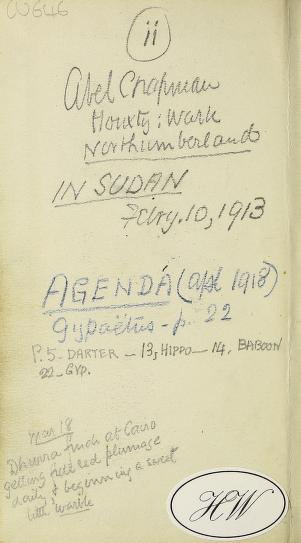 ii
Abel Chapman
Houxty: Wark
Northumberland
IN SUDAN
Febry. 10, 1913
AGENDA (apl 1918)
Gypaëtus - p. 22
P. 5 - DARTER - 13, HIPPO - 14, BABOON
22 - Gyp.
Mar 18
Dhurra finch at Cairo
getting full red plumage
daily & beginning a sweet
little warble
HW